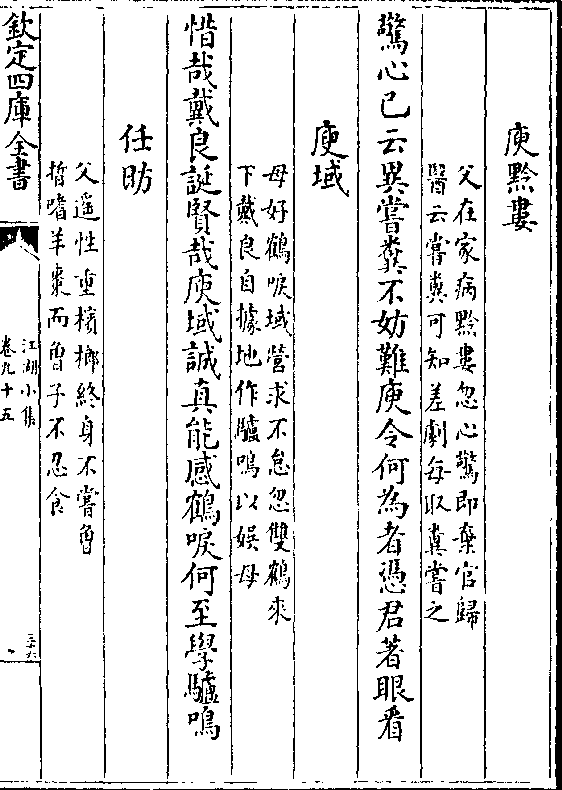 庾黔婁
父在家病黔婁忽心驚即棄官歸
醫云嘗糞可知差劇每取糞嘗之
驚心已云異嘗糞不妨難庾令何為者憑君著眼看
庾域
母好鶴唳域營求不怠忽雙鶴來
下戴良自據地作驢鳴以娛母
惜哉戴良誕賢哉庾域誠真能感鶴唳何至學驢鳴
任昉
父遥性重檳榔終身不嘗魯
晳嗜羊棗而魯子不忍食
欽定四庫全書
江湖小集
卷九十五
三十六